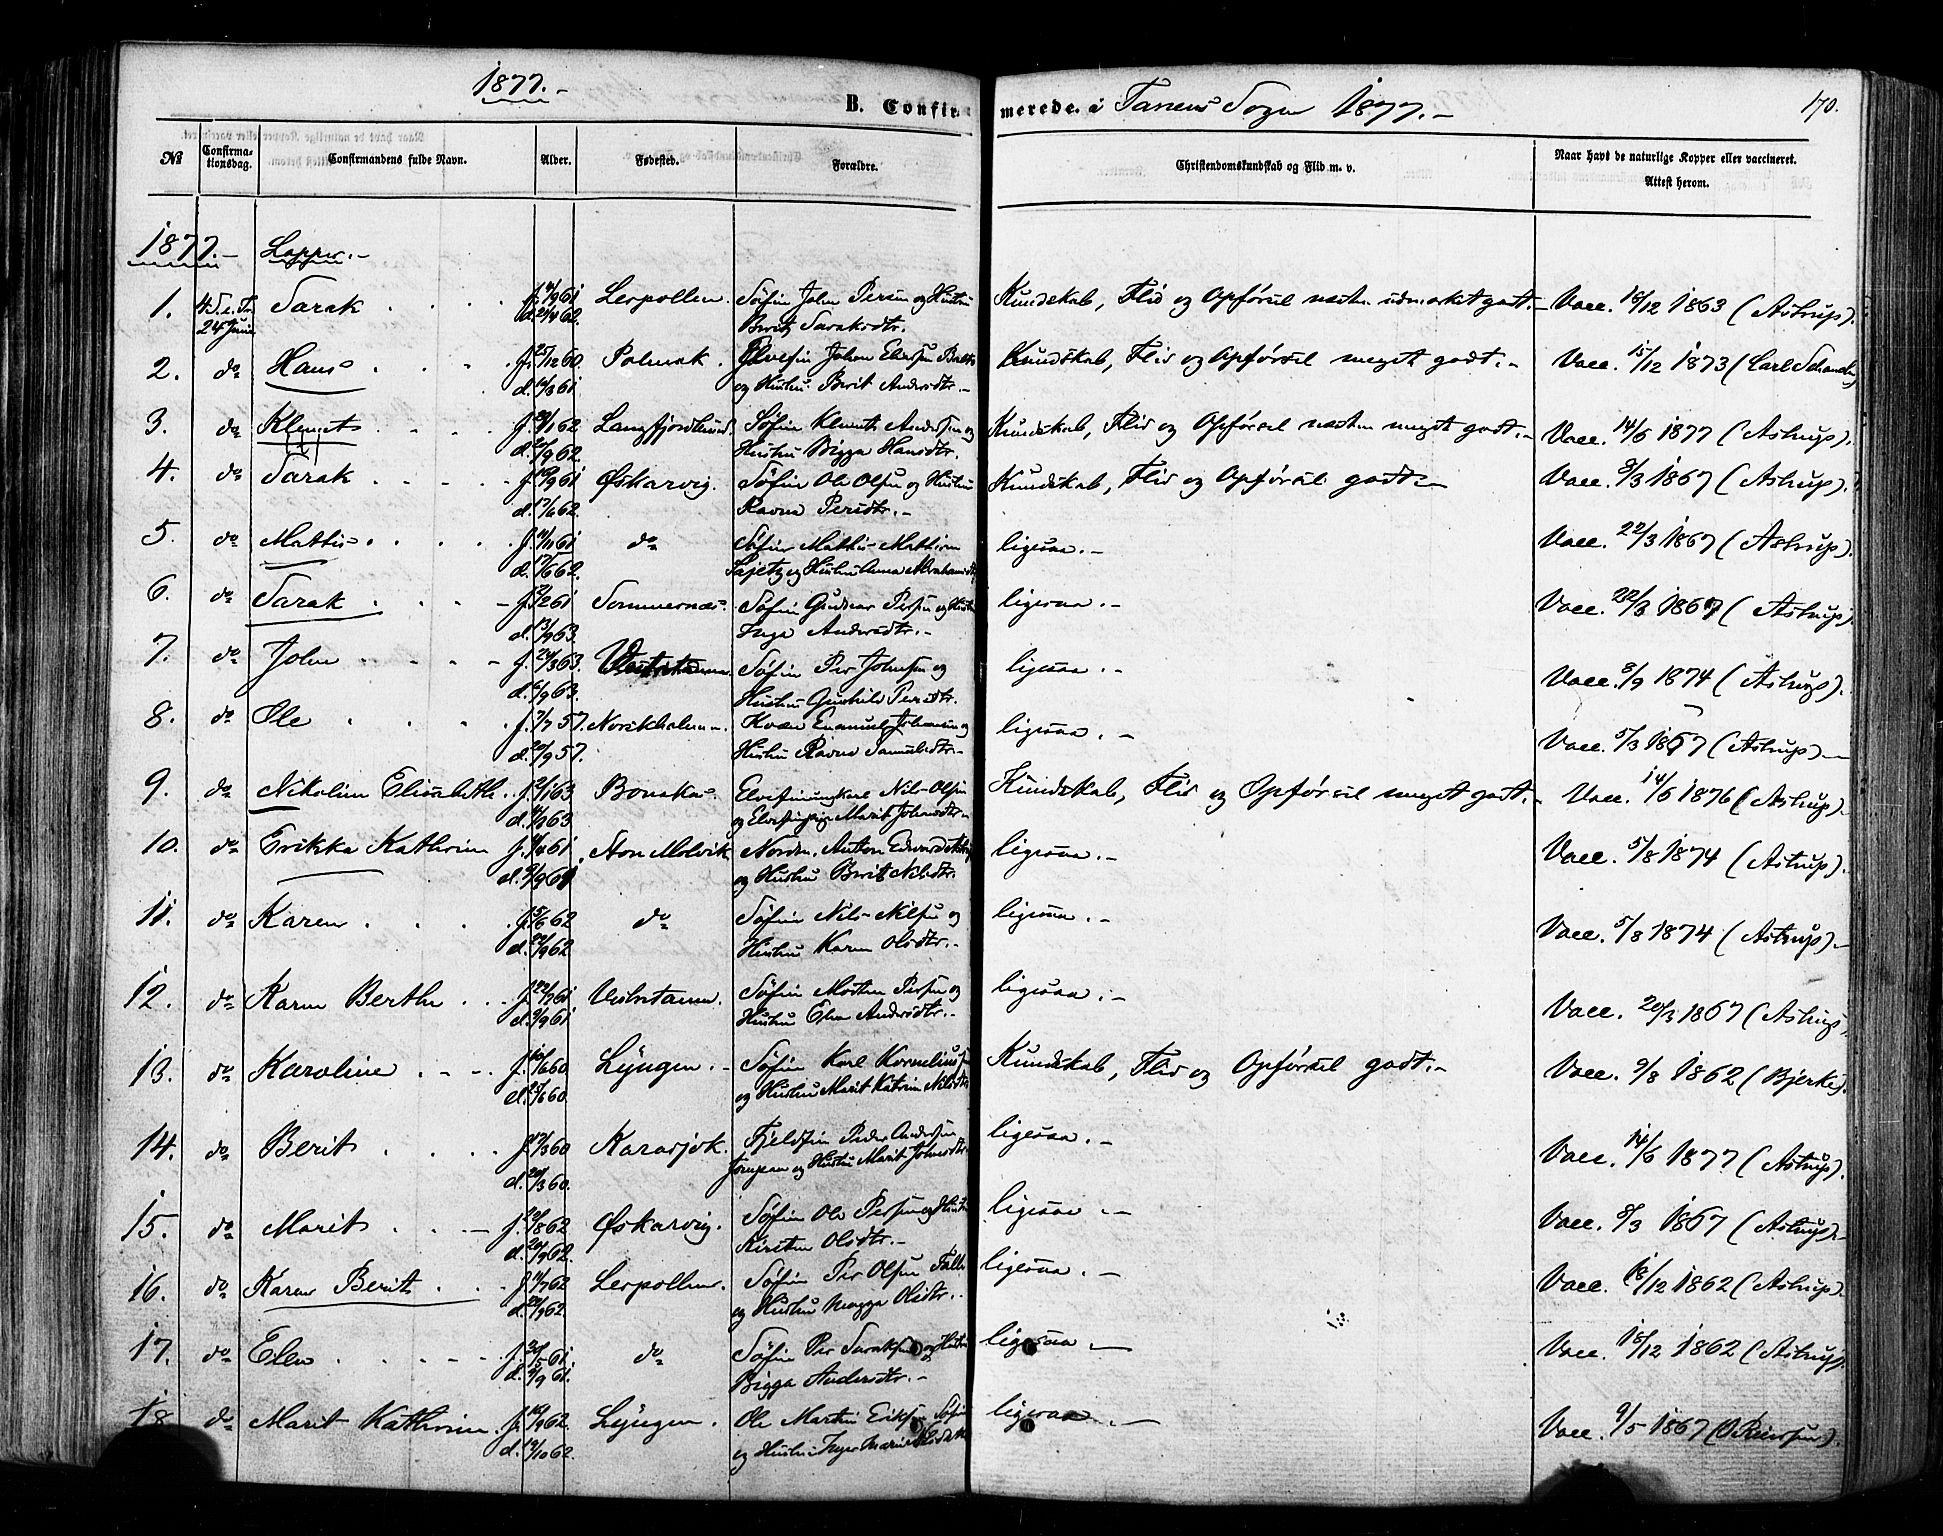 1877.-
B. Confir-
merede i Tanens Sogn 1877.-
170.
No
Confirma-
tionsdag.
Confirmandens fulde Navn.
Alder.
Fødested.
Forældre.
Christendomskundskab og Flid m. v.
Naar havt de naturlige Kopper eller vaccineret.
Attest herom.
1877.- Lapper.-
1. 4 S. e. Tr. Sarak f. 61 Lerpollen. Søfin John Persen og Hustru Kundskab, Flid og Opførsel næsten udmærket godt.- Vacc. 18/12 1863 (Astrup).
24 Juni d. 21/4 62. Berit Saraksdtr.
2. do Hans f. 25/12 60. Polmak. Elvefin John Kundskab, Flid og Opførsel meget godt.- Vacc. 15/12 1873 (Carl
d. 61 og Hustru Berit Andersdtr.-
3. do Klemet f. 62. Langfjordbund. Søfin Klemet Andersen og Kundskab, Flid og Opførsel næsten meget godt.- Vacc. 14/6 1877 (Astrup).
d. /9 62. Hustru Bigga Hansdtr.
4. do Sarak f. /9 61 Øskarvig. Søfin Ole Olsen og Hustru Kundskab, Flid og Opførsel godt.- Vacc. /3 1867 (Astrup).
d. 17/6 62. Ravna Persdtr.-
5. do Mattis f. 11/11 61 do Søfin Mattis Mathisen ligesaa.- Vacc. 22/3 1867 (Astrup).
d. 17/6 62. og Hustru Anna Abrahamsdtr.
6. do Sarak f. /2 61 Sommernæs. Søfin Gudnar Persen og Hustru ligesaa.- Vacc. 22/3 1867 (Astrup).
d. 13/9 63. Inga Andersdtr.-
7. do John f. 24/3 63. Vestertanen Søfin Per Johnsen og ligesaa.- Vacc. /9 1874 (Astrup).
d. 6/9 63. Hustru Gunhild Persdtr.
8. do Ole f. 7/7 57. Norskholmen.- Kvæn Emanuel Johansen og ligesaa.- Vacc. 5/3 1867 (Astrup)-
d. 20/9 57. Hustru Ravna Samuelsdtr.-
9. do Nikoline Elisabeth. f. /1 63 Bonakas. Elvefinungkarl Nils Olsen Kundskab, Flid og Opførsel meget godt.- Vacc. 14/6 1876 (Astrup)
d. 63. og Elvefinpige Marit Johnsdtr.-
10. do Erikka Kathrine f. 61. Store Molvik Nordm. Anton ligesaa.- Vacc. 5/8 1874 (Astrup).
d. /9 61 og Hustru Berit Nilsdtr.
11. do Karen f. 5/6 62 do Søfin Nils Nilsen og ligesaa.- Vacc. 5/8 1874 (Astrup).-
d. /9 62. Hustru Karen Olsdtr.-
12. do Karen Berthe f. 22/7 61 Vestertanen. Søfin Morten Persen og ligesaa.- Vacc. 20/3 1867 (Astrup)
d. /9 61 Hustru Elen Andersdtr.-
13. do Karoline f. 10/6 60 Lyngen.- Søfin Karl Korneliussen Kundskab, Flid og Opførsel godt.- Vacc. 9/8 1862 (Bjerke).
d. /6 60. og Hustru Marit Katrine Nilsdtr.
14. do Berit f. 17/3 60 Karasjok. Fjeldfin Peder Andersen ligesaa.- Vacc. 14/6 1877 (Astrup).
d. 20/3 60. og Hustru Marit Johnsdtr.
15. do Marit f. /8 62 Øskarvig. Søfin Ole Persen og Hustru ligesaa.- Vacc. /3 1867 (Astrup).
d. 20/9 62. Kirsten Olsdtr.-
16. do Karen Berit f. /7 62 Lerpollen. Søfin Per Olsen ligesaa.- Vacc. 18/12 1862 (Astrup).
d. /9 62. og Hustru Magga Olsdtr.
17. do Elen f. /5 61 do Søfin Per Saraksen og Hustru ligesaa.- Vacc. 18/12 1862 (Astrup)
d. /9 61. Bigga Andersdtr.-
18. do Marit Kathrine. f. /9 62. Lyngen. Ole Martin Eriksen Søfin ligesaa.- Vacc. 9/5 1867
d. 12/10 62. og Hustru Inger Marie